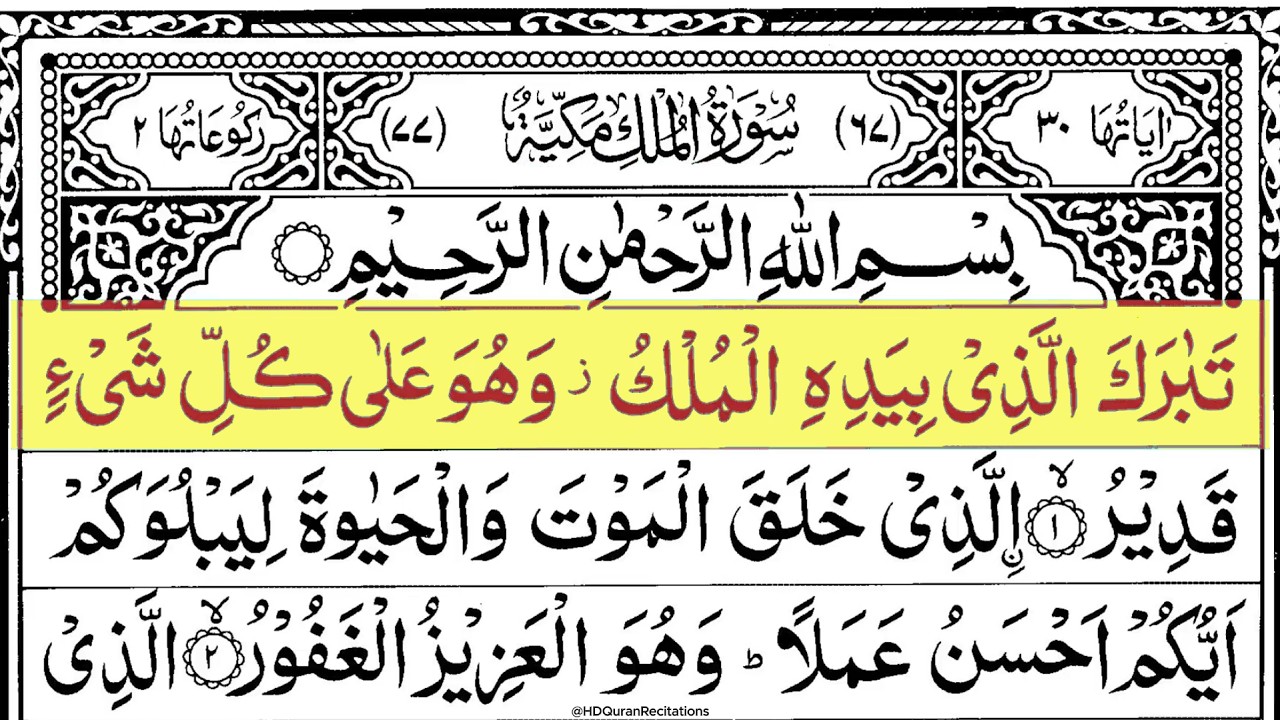 اٰيَاتُهَا ٣٠ (٦٧) سُوْرَةُ الْمُلْكِ مَكِّيَّةٌ (٧٧) رُكُوْعَاتُهَا ٢
بِسْمِ اللّٰهِ الرَّحْمٰنِ الرَّحِيْمِ
تَبٰرَكَ الَّذِىْ بِيَدِهِ الْمُلْكُ ز وَهُوَ عَلٰى كُلِّ شَىْءٍ
قَدِيْرُ ۙ﴿١﴾ ۨالَّذِىْ خَلَقَ الْمَوْتَ وَالْحَيٰوةَ لِيَبْلُوَكُمْ
اَيُّكُمْ اَحْسَنُ عَمَلًا ؕ وَهُوَ الْعَزِيْزُ الْغَفُوْرُ ۙ﴿٢﴾ الَّذِىْ
@HDQuranRecitations